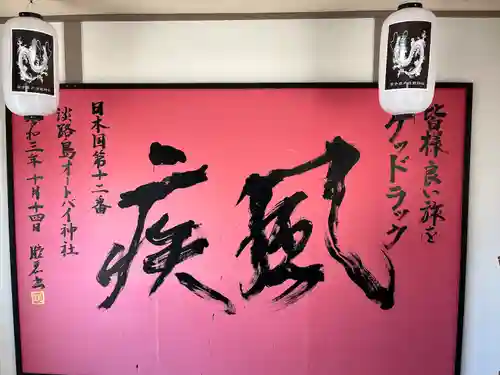 皆様良い旅を
グッドラック
疾風
日本国第十二番
淡路島オートバイ神社
令和三年 十月十四日